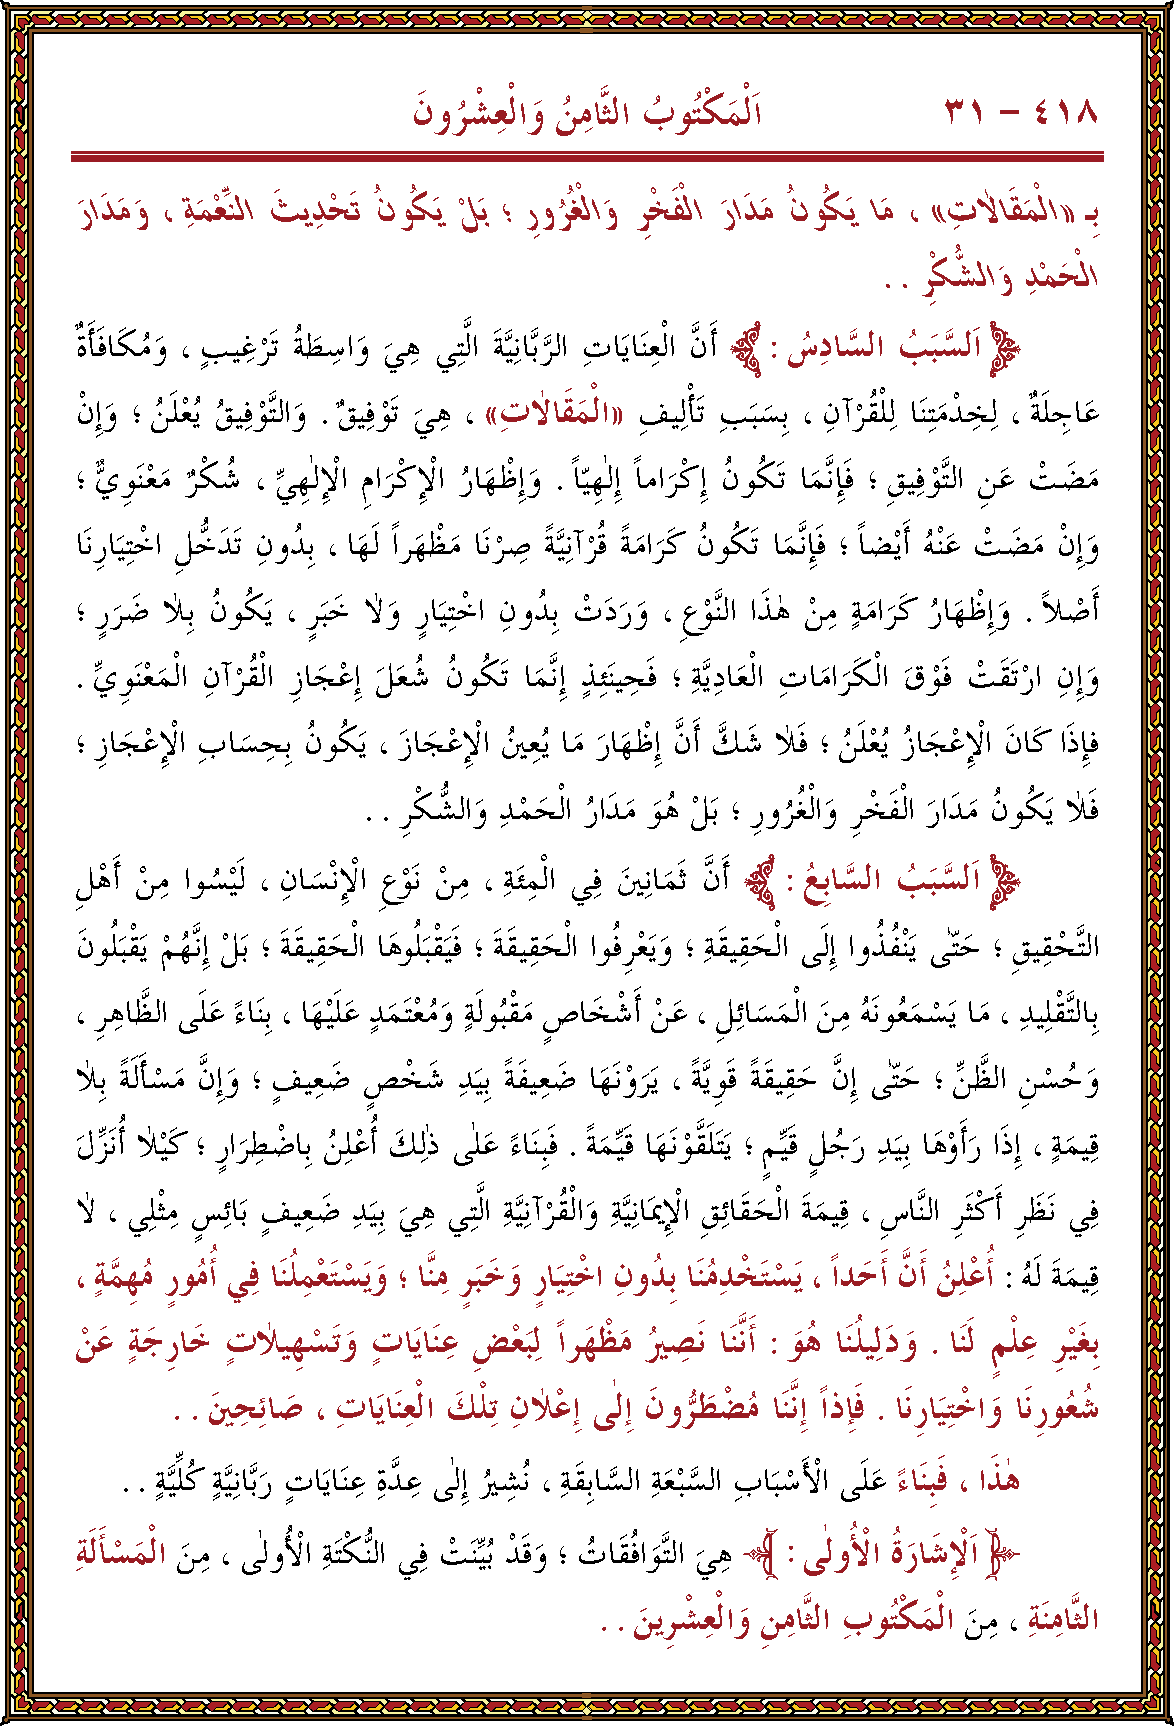 ٤١٨ - ٣١ اَلْمَكْتُوبُ الثَّامِنُ وَالْعِشْرُونَ
بِـ «الْمَقَالَاتِ» ، مَا يَكُونُ مَدَارَ الْفَخْرِ وَالْغُرُورِ ؛ بَلْ يَكُونُ تَحْدِيثَ النِّعْمَةِ ، وَمَدَارَ
الْحَمْدِ وَالشُّكْرِ . .
﴿ اَلسَّبَبُ السَّادِسُ : ﴾ أَنَّ الْعِنَايَاتِ الرَّبَّانِيَّةَ الَّتِي هِيَ وَاسِطَةُ تَرْغِيبٍ ، وَمُكَافَأَةٌ
عَاجِلَةٌ ، لِخِدْمَتِنَا لِلْقُرْآنِ ، بِسَبَبِ تَأْلِيفِ «الْمَقَالَاتِ» ، هِيَ تَوْفِيقٌ . وَالتَّوْفِيقُ يُعْلَنُ ؛ وَإِنْ
مَضَتْ عَنِ التَّوْفِيقِ ؛ فَإِنَّمَا تَكُونُ إِكْرَاماً إِلٰهِيّاً . وَإِظْهَارُ الْإِكْرَامِ الْإِلٰهِيِّ ، شُكْرٌ مَعْنَوِيٌّ ؛
وَإِنْ مَضَتْ عَنْهُ أَيْضاً ؛ فَإِنَّمَا تَكُونُ كَرَامَةً قُرْآنِيَّةً صِرْنَا مَظْهَراً لَهَا ، بِدُونِ تَدَخُّلِ اخْتِيَارِنَا
أَصْلاً . وَإِظْهَارُ كَرَامَةٍ مِنْ هٰذَا النَّوْعِ ، وَرَدَتْ بِدُونِ اخْتِيَارٍ وَلَا خَبَرٍ ، يَكُونُ بِلَا ضَرَرٍ ؛
وَإِنِ ارْتَقَتْ فَوْقَ الْكَرَامَاتِ الْعَادِيَّةِ ؛ فَحِينَئِذٍ إِنَّمَا تَكُونُ شُعَلَ إِعْجَازِ الْقُرْآنِ الْمَعْنَوِيِّ .
فَإِذَا كَانَ الْإِعْجَازُ يُعْلَنُ ؛ فَلَا شَكَّ أَنَّ إِظْهَارَ مَا يُعِينُ الْإِعْجَازَ ، يَكُونُ بِحِسَابِ الْإِعْجَازِ ؛
فَلَا يَكُونُ مَدَارَ الْفَخْرِ وَالْغُرُورِ ؛ بَلْ هُوَ مَدَارُ الْحَمْدِ وَالشُّكْرِ . .
﴿ اَلسَّبَبُ السَّابِعُ : ﴾ أَنَّ ثَمَانِينَ فِي الْمِئَةِ ، مِنْ نَوْعِ الْإِنْسَانِ ، لَيْسُوا مِنْ أَهْلِ
التَّحْقِيقِ ؛ حَتّٰى يَنْفُذُوا إِلَى الْحَقِيقَةِ ؛ وَيَعْرِفُوا الْحَقِيقَةَ ؛ فَيَقْبَلُوهَا الْحَقِيقَةَ ؛ بَلْ إِنَّهُمْ يَقْبَلُونَ
بِالتَّقْلِيدِ ، مَا يَسْمَعُونَهُ مِنَ الْمَسَائِلِ ، عَنْ أَشْخَاصٍ مَقْبُولَةٍ وَمُعْتَمَدٍ عَلَيْهَا ، بِنَاءً عَلَى الظَّاهِرِ ،
وَحُسْنِ الظَّنِّ ؛ حَتّٰى إِنَّ حَقِيقَةً قَوِيَّةً ، يَرَوْنَهَا ضَعِيفَةً بِيَدِ شَخْصٍ ضَعِيفٍ ؛ وَإِنَّ مَسْأَلَةً بِلَا
قِيمَةٍ ، إِذَا رَأَوْهَا بِيَدِ رَجُلٍ قَيِّمٍ ؛ يَتَلَقَّوْنَهَا قَيِّمَةً . فَبِنَاءً عَلٰى ذٰلِكَ أُعْلِنُ بِاضْطِرَارٍ ؛ كَيْلَا أُنَزِّلَ
فِي نَظَرِ أَكْثَرِ النَّاسِ ، قِيمَةَ الْحَقَائِقِ الْإِيمَانِيَّةِ وَالْقُرْآنِيَّةِ الَّتِي هِيَ بِيَدِ ضَعِيفٍ بَائِسٍ مِثْلِي ، لَا
قِيمَةَ لَهُ : أُعْلِنُ أَنَّ أَحَداً ، يَسْتَخْدِمُنَا بِدُونِ اخْتِيَارٍ وَخَبَرٍ مِنَّا ؛ وَيَسْتَعْمِلُنَا فِي أُمُورٍ مُهِمَّةٍ ،
بِغَيْرِ عِلْمٍ لَنَا . وَدَلِيلُنَا هُوَ : أَنَّنَا نَصِيرُ مَظْهَراً لِبَعْضِ عِنَايَاتٍ وَتَسْهِيلَاتٍ خَارِجَةٍ عَنْ
شُعُورِنَا وَاخْتِيَارِنَا . فَإِذاً إِنَّنَا مُضْطَرُّونَ إِلٰى إِعْلَانِ تِلْكَ الْعِنَايَاتِ ، صَائِحِينَ . .
هٰذَا ، فَبِنَاءً عَلَى الْأَسْبَابِ السَّبْعَةِ السَّابِقَةِ ، نُشِيرُ إِلٰى عِدَّةِ عِنَايَاتٍ رَبَّانِيَّةٍ كُلِّيَّةٍ . .
﴿ اَلْإِشَارَةُ الْأُولٰى : ﴾ هِيَ التَّوَافُقَاتُ ؛ وَقَدْ بُيِّنَتْ فِي النُّكْتَةِ الْأُولٰى ، مِنَ الْمَسْأَلَةِ
الثَّامِنَةِ ، مِنَ الْمَكْتُوبِ الثَّامِنِ وَالْعِشْرِينَ . .